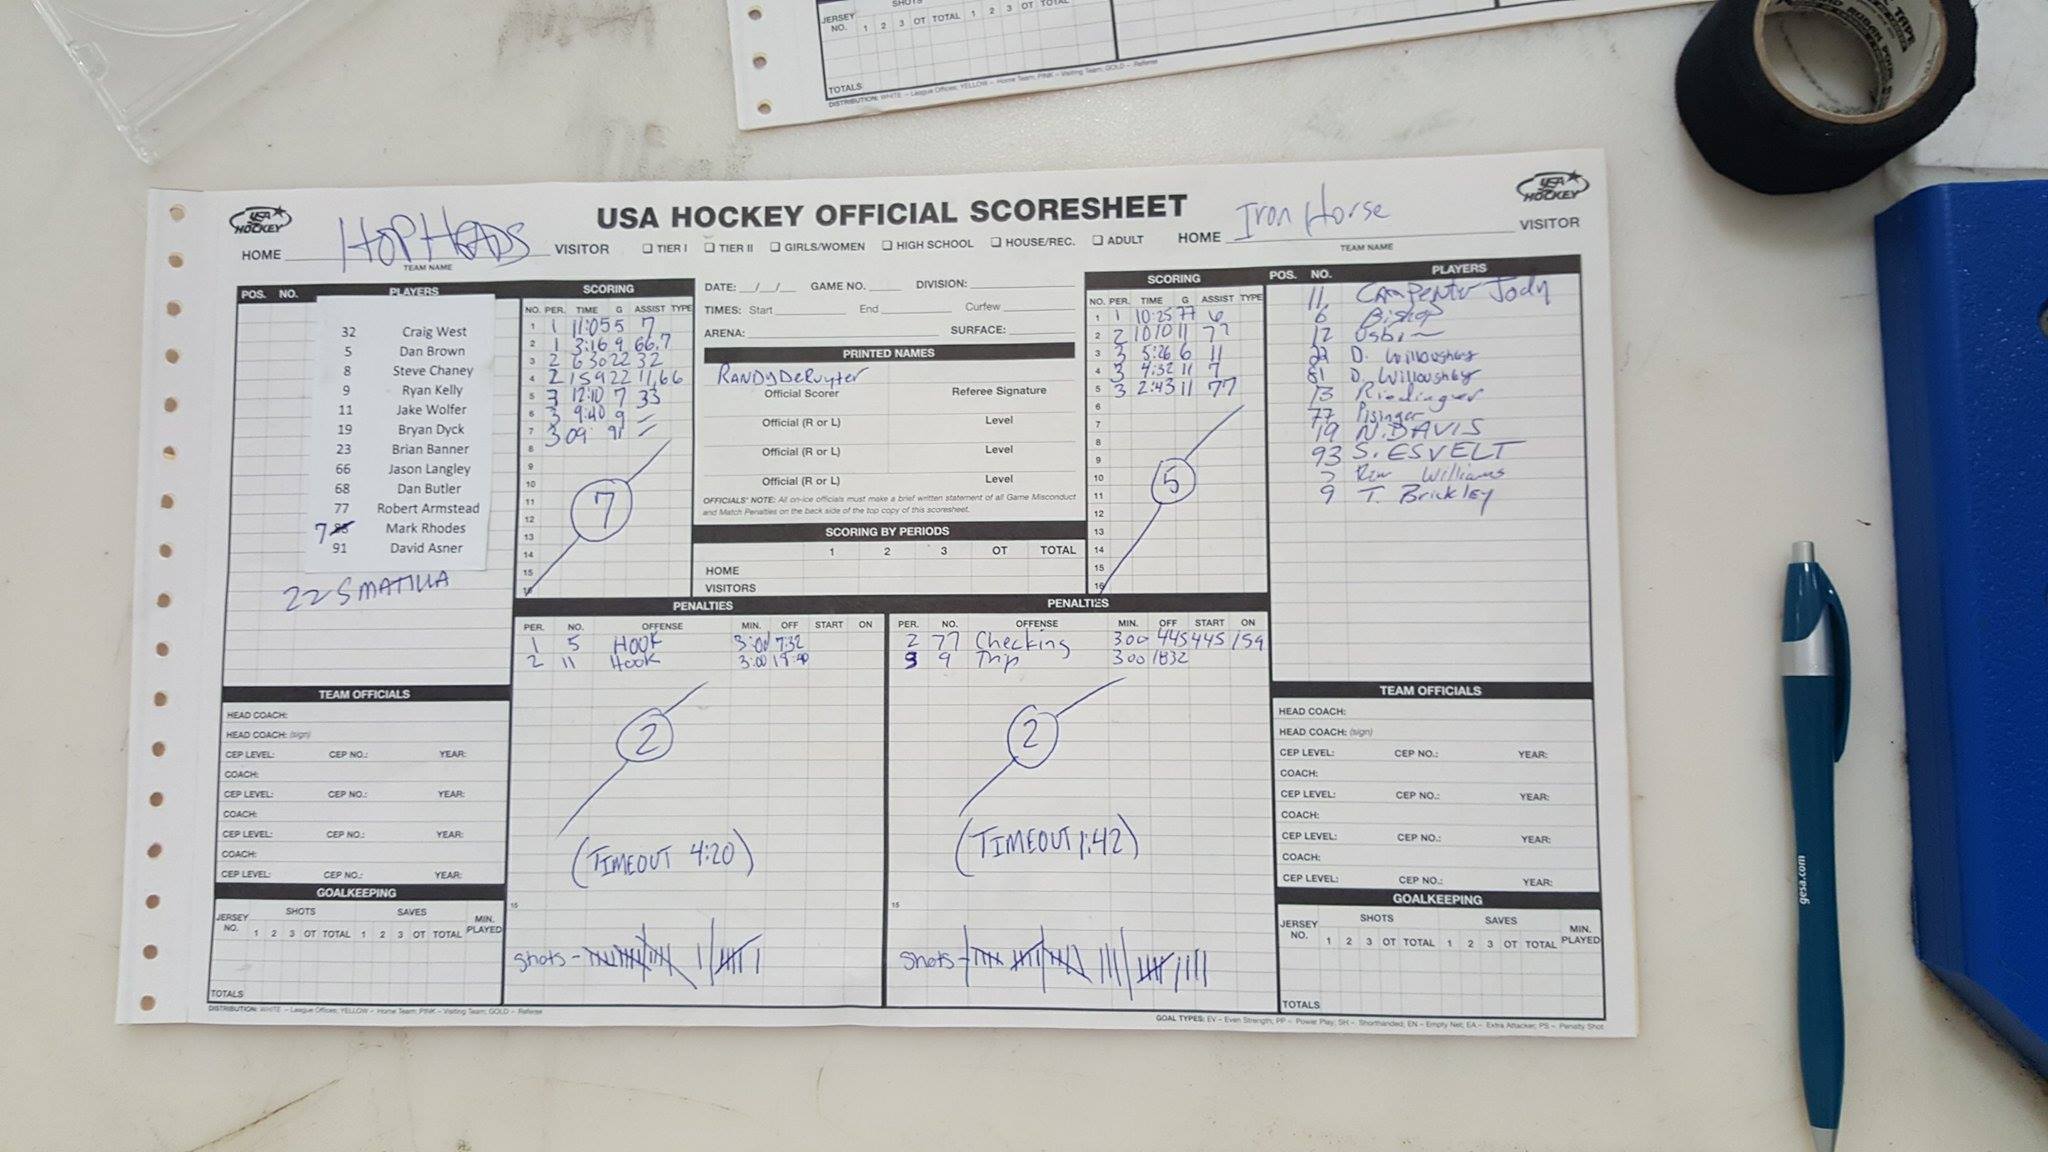 JERSEY NO. 1 2 3 OT TOTAL 1 2 3 OT TOTAL
TOTALS
DISTRIBUTION: WHITE – League Offices; YELLOW – Home Team; PINK – Visiting Team; GOLD – Referee
USA HOCKEY
USA HOCKEY OFFICIAL SCORESHEET
USA HOCKEY
HOME HOPHEADS VISITOR
TEAM NAME
TIER I TIER II GIRLS/WOMEN HIGH SCHOOL HOUSE/REC. ADULT
HOME Iron Horse VISITOR
TEAM NAME
POS. NO. PLAYERS
32 Craig West
5 Dan Brown
8 Steve Chaney
9 Ryan Kelly
11 Jake Wolfer
19 Bryan Dyck
23 Brian Banner
66 Jason Langley
68 Dan Butler
77 Robert Armstead
7 Mark Rhodes
91 David Asner
22 SMATILLA
SCORING
NO. PER. TIME G ASSIST TYPE
1 1 11:05 5 7
2 1 3:16 9 66,7
3 2 630 22 32
4 2 159 22 11,66
5 3 12:10 7 33
6 3 9:40 9 –
7 3 09 91 –
8
9
10
11
12
13
14
15
16
7
DATE: __/__/__ GAME NO. DIVISION:
TIMES: Start End Curfew
ARENA: SURFACE:
PRINTED NAMES
RANDY DeRuyter
Official Scorer Referee Signature
Official (R or L) Level
Official (R or L) Level
Official (R or L) Level
OFFICIALS' NOTE: All on-ice officials must make a brief written statement of all Game Misconduct
and Match Penalties on the back side of the top copy of this scoresheet.
SCORING BY PERIODS
1 2 3 OT TOTAL
HOME
VISITORS
SCORING
NO. PER. TIME G ASSIST TYPE
1 1 10:25 77 6
2 2 1010 11 77
3 3 5:26 6 11
4 3 4:32 11 7
5 3 2:43 11 77
6
7
8
9
10
11
12
13
14
15
16
5
POS. NO. PLAYERS
11 Carpenter Jody
6 Bishop
12
22 D. Willoughby
81 D. Willoughby
13 Riedlinger
77 Pisinger
19 N. DAVIS
93 S. ESVELT
3 Williams
9 T. Brickley
PENALTIES
PER. NO. OFFENSE MIN. OFF START ON
1 5 HOOK 3:00 7:32
2 11 HOOK 3:00
2
(TIMEOUT 4:20)
15
Shots –
PENALTIES
PER. NO. OFFENSE MIN. OFF START ON
2 77 Checking 300 445 445 159
3 9 Trip 300 1832
2
(TIMEOUT 1:42)
15
Shots –
TEAM OFFICIALS
HEAD COACH:
HEAD COACH: (sign)
CEP LEVEL: CEP NO.: YEAR:
COACH:
CEP LEVEL: CEP NO.: YEAR:
COACH:
CEP LEVEL: CEP NO.: YEAR:
COACH:
CEP LEVEL: CEP NO.: YEAR:
GOALKEEPING
SHOTS SAVES
JERSEY NO. 1 2 3 OT TOTAL 1 2 3 OT TOTAL MIN. PLAYED
TOTALS
DISTRIBUTION: WHITE – League Offices; YELLOW – Home Team; PINK – Visiting Team; GOLD – Referee
TEAM OFFICIALS
HEAD COACH:
HEAD COACH: (sign)
CEP LEVEL: CEP NO.: YEAR:
COACH:
CEP LEVEL: CEP NO.: YEAR:
COACH:
CEP LEVEL: CEP NO.: YEAR:
COACH:
CEP LEVEL: CEP NO.: YEAR:
GOALKEEPING
SHOTS SAVES
JERSEY NO. 1 2 3 OT TOTAL 1 2 3 OT TOTAL MIN. PLAYED
TOTALS
GOAL TYPES: EV – Even Strength; PP – Power Play; SH – Shorthanded; EN – Empty Net; EA – Extra Attacker; PS – Penalty Shot
gesa.com